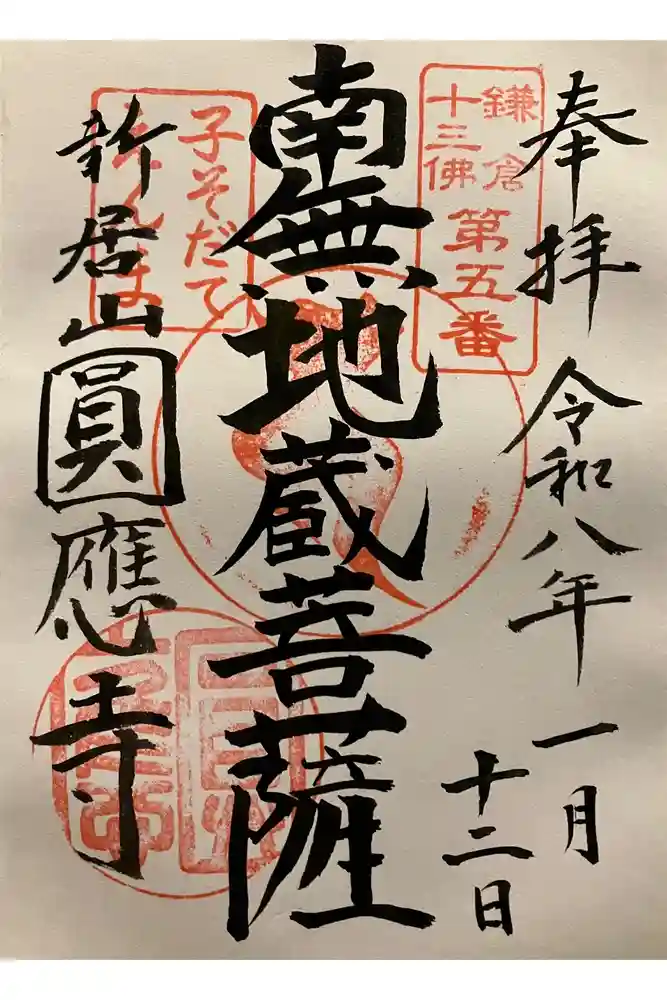 奉拝 令和八年
一月
十二日
鎌倉
十三佛
第五番
南無地蔵菩薩
子そだて
えんま
新居山圓應寺